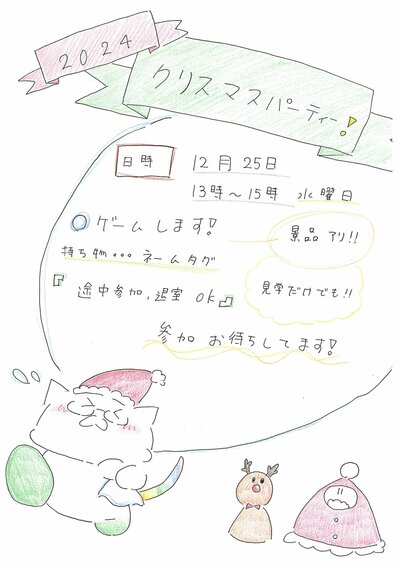 2024
クリスマスパーティー!
日時
12月25日
13時～15時 水曜日
ゲームします!
景品アリ!!
持ち物…ネームタグ
『途中参加、退室 ok』
見学だけでも!!
参加 お待ちしてます!